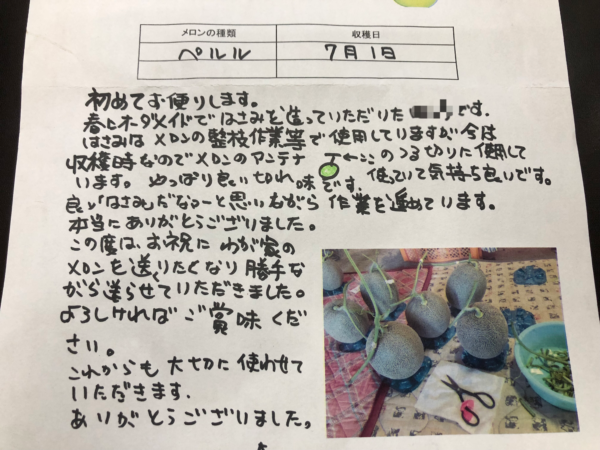 メロンの種類 収穫日
ペルル 7月1日
初めてお便りします。
春にオーダーメイドではさみを造っていただいた です。
はさみは メロンの整枝作業等で使用していますが今は
収穫時なのでメロンのアンテナ ←ここのつる切りに使用して
います。 やっぱり良い切れ味です。使っていて気持ち良いです。
良い「はさみ」だなぁーと思いながら 作業を進めています。
本当にありがとうございました。
この度は、お祝に わが家の
メロンを送りたくなり勝手な
がら送らせていただきました。
よろしければ ご賞味くだ
さい。
これからも 大切に使わせて
いただきます.
ありがとうございました。